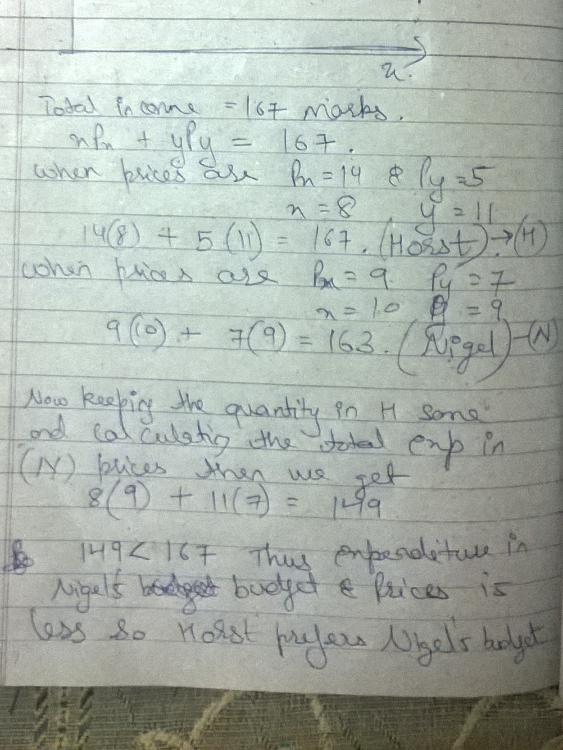 x.
Total income = 167 marks.
xPx + yPy = 167.
when prices are Px = 14 & Py = 5
x = 8 y = 11
14(8) + 5(11) = 167. (Horst) → (H)
when prices are Px = 9 Py = 7
x = 10 y = 9
9(10) + 7(9) = 163. (Nigel) - (N)
Now keeping the quantity in H same
and calculatig the total exp in
(N) prices then we get
8(9) + 11(7) = 149
149 < 167 Thus expenditure in
Nigel's budget & Prices is
less so Horst prefers Nigel's budget